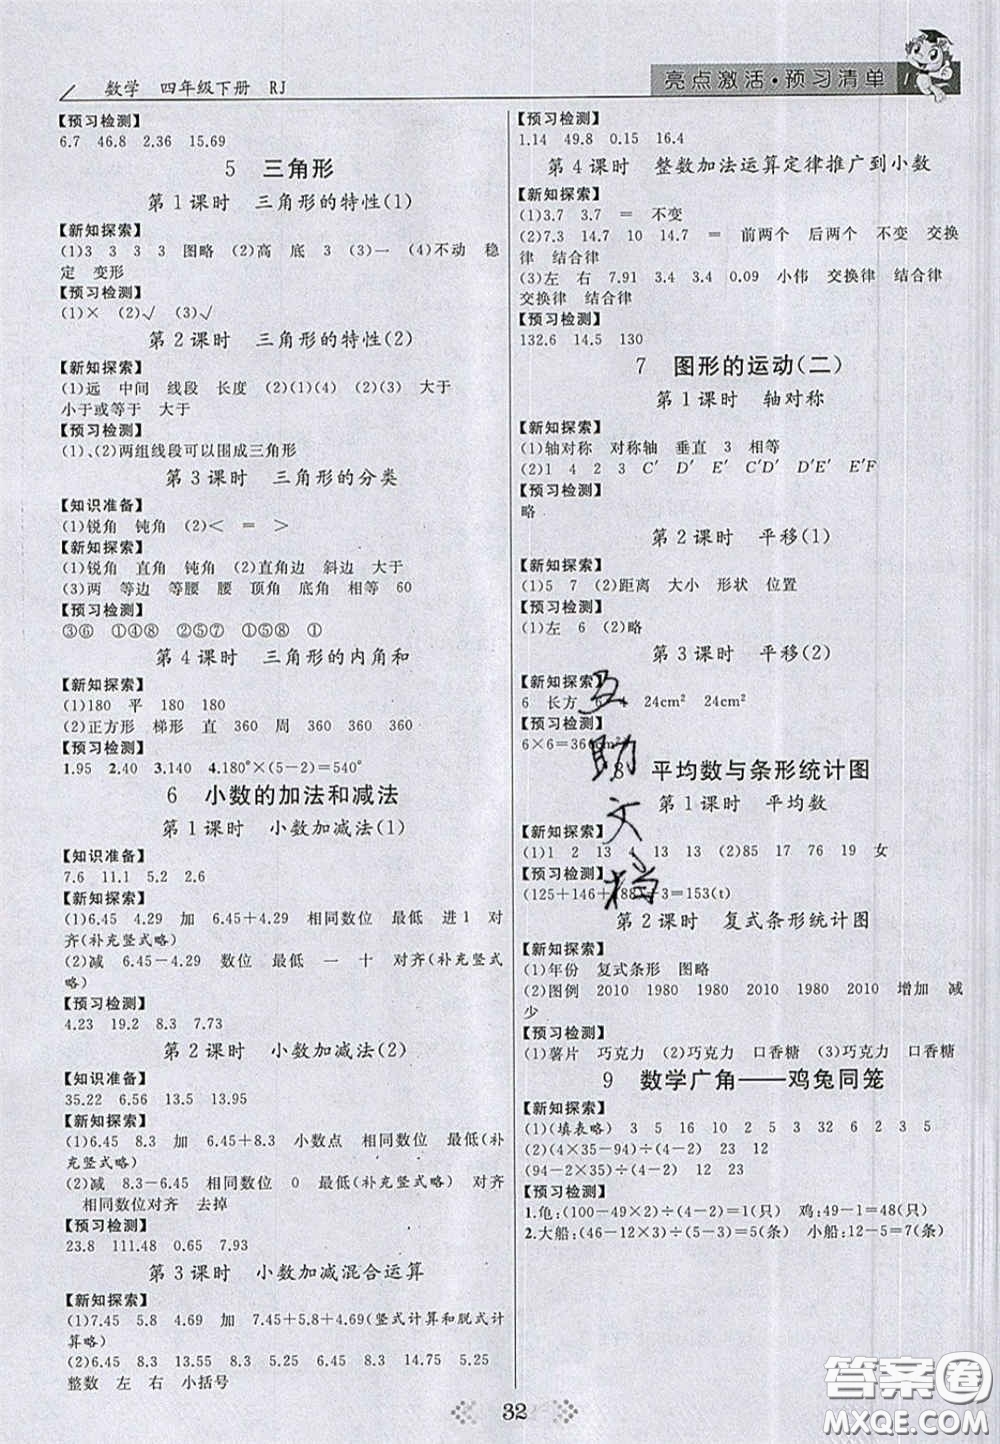 数学 四年级下册 RJ
亮点激活·预习清单
【预习检测】
6.7 46.8 2.36 15.69
5 三角形
第1课时 三角形的特性(1)
【新知探索】
(1)3 3 3 3 图略 (2)高 底 3 (3)一 (4)不动 稳
定 变形
【预习检测】
(1)× (2)√ (3)√
第2课时 三角形的特性(2)
【新知探索】
(1)远 中间 线段 长度 (2)(1)(4) (2)(3) 大于
小于或等于 大于
【预习检测】
(1)、(2)两组线段可以围成三角形
第3课时 三角形的分类
【知识准备】
(1)锐角 钝角 (2)< = >
【新知探索】
(1)锐角 直角 钝角 (2)直角边 斜边 大于
(3)两 等边 等腰 腰 顶角 底角 相等 60
【预习检测】
③⑥ ①④⑧ ②⑤⑦ ①⑤⑧ ①
第4课时 三角形的内角和
【新知探索】
(1)180 平 180 180
(2)正方形 梯形 直 360 周 360 360 360
【预习检测】
1.95 2.40 3.140 4.180°×(5-2)=540°
6 小数的加法和减法
第1课时 小数加减法(1)
【知识准备】
7.6 11.1 5.2 2.6
【新知探索】
(1)6.45 4.29 加 6.45+4.29 相同数位 最低 进1 对
齐(补充竖式略)
(2)减 6.45-4.29 数位 最低 一 十 对齐(补充竖
式略)
【预习检测】
4.23 19.2 8.3 7.73
第2课时 小数加减法(2)
【知识准备】
35.22 6.56 13.5 13.95
【新知探索】
(1)6.45 8.3 加 6.45+8.3 小数点 相同数位 最低(补
充竖式略)
(2)减 8.3-6.45 相同数位 0 最低(补充竖式略) 对齐
相同数位对齐 去掉
【预习检测】
23.8 111.48 0.65 7.93
第3课时 小数加减混合运算
【新知探索】
(1)7.45 5.8 4.69 加 7.45+5.8+4.69(竖式计算和脱式计
算略)
(2)6.45 8.3 14.75 5.25 6.45 8.3 14.75 5.25
整数 左 右 小括号
【预习检测】
1.14 49.8 0.15 16.4
第4课时 整数加法运算定律推广到小数
【新知探索】
(1)3.7 3.7 = 不变
(2)7.3 14.7 10 14.7 = 前两个 后两个 不变 交换
律 结合律
(3)左 右 7.91 3.4 3.4 0.09 小伟 交换律 结合律
交换律 结合律
【预习检测】
132.6 14.5 130
7 图形的运动(二)
第1课时 轴对称
【新知探索】
(1)轴对称 对称轴 垂直 3 相等
(2)1 4 2 3 C′ D′ E′ C′D′ D′E′ E′F
【预习检测】
略
第2课时 平移(1)
【新知探索】
(1)5 7 (2)距离 大小 形状 位置
【预习检测】
(1)左 6 (2)略
第3课时 平移(2)
【新知探索】
6 长方 6 4 24cm² 24cm²
【预习检测】
6×6=36(cm²)
8 平均数与条形统计图
第1课时 平均数
【新知探索】
(1)1 2 13 4 13 13 (2)85 17 76 19 女
【预习检测】
(125+146+188)÷3=153(t)
第2课时 复式条形统计图
【新知探索】
(1)年份 复式条形 图略
(2)图例 2010 1980 1980 2010 1980 2010 增加 减
少
【预习检测】
(1)薯片 巧克力 (2)巧克力 口香糖 (3)巧克力 口香糖
9 数学广角——鸡兔同笼
【新知探索】
(1)(填表略) 3 5 16 10 2 5 3 32 6 2 3 5
(2)(4×35-94)÷(4-2) 23 12
(94-2×35)÷(4-2) 12 23
【预习检测】
1.龟:(100-49×2)÷(4-2)=1(只) 鸡:49-1=48(只)
2.大船:(46-12×3)÷(5-3)=5(条) 小船:12-5=7(条)
互助文档
32
答案圈
MXQE.COM